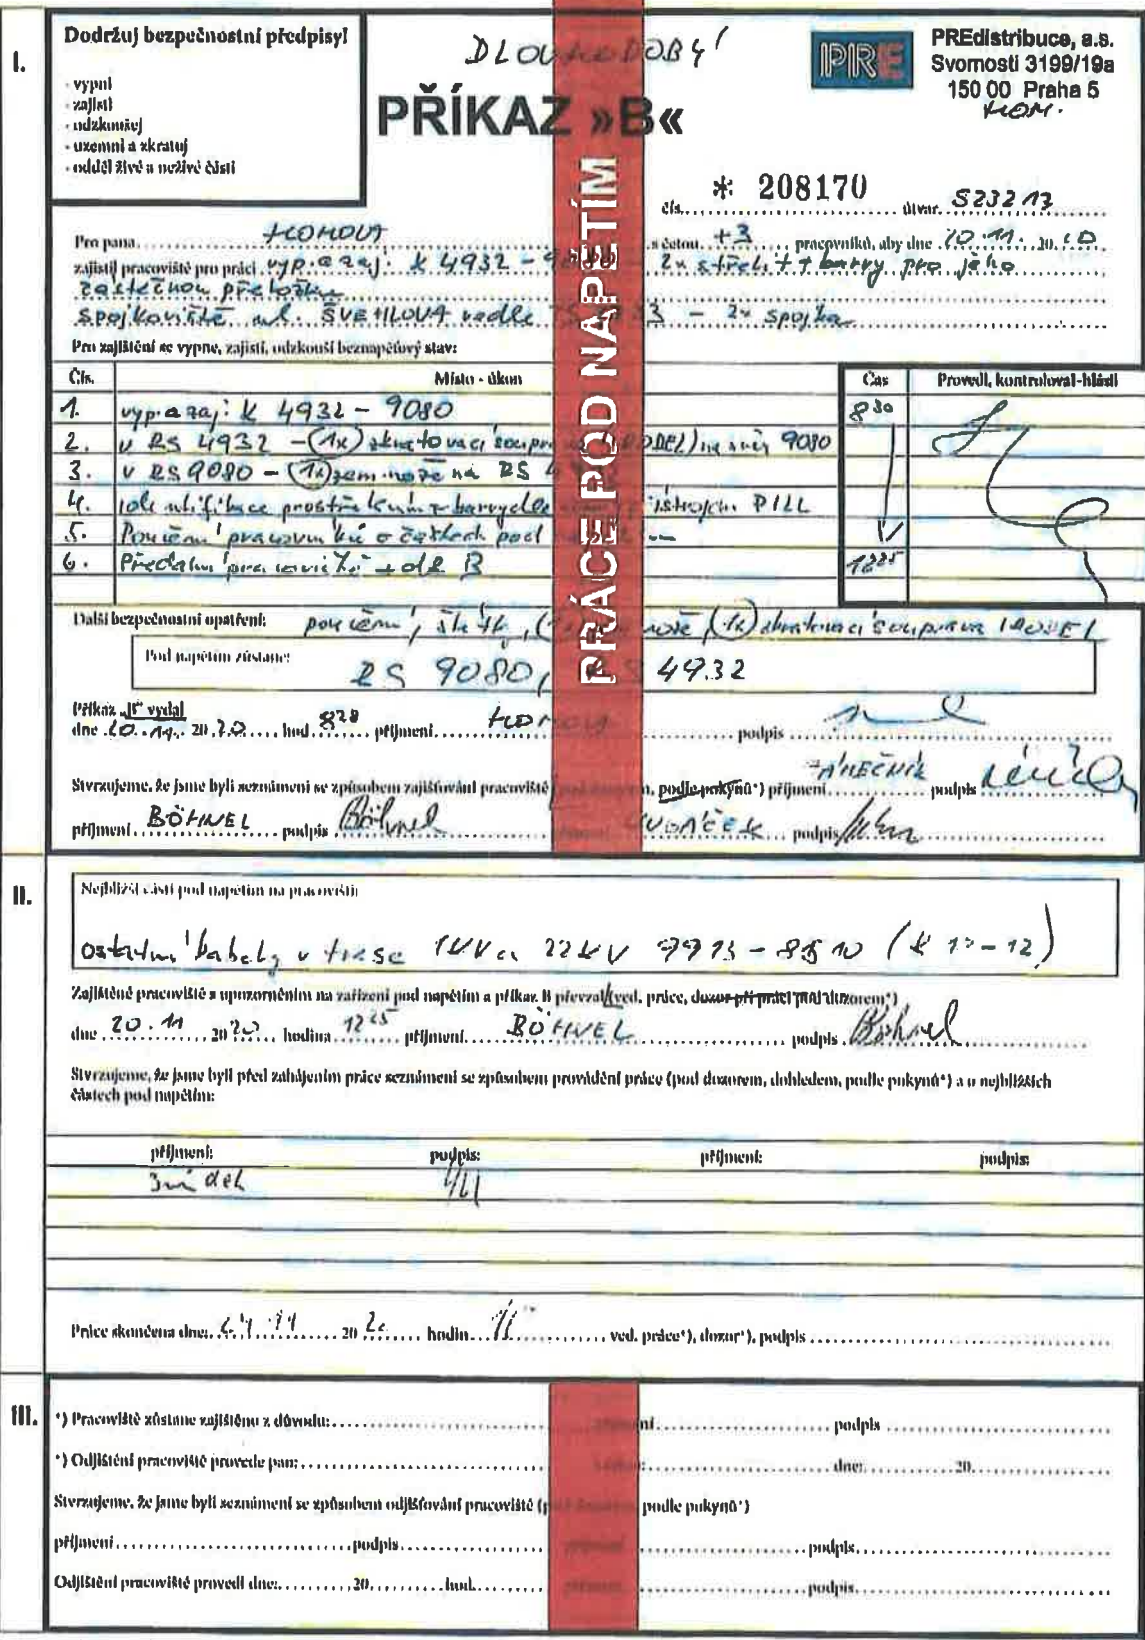 I.
Dodržuj bezpečnostní předpisy!
- vypni
- zajisti
- odzkoušej
- uzemni a zkratuj
- odděl živé a neživé části
DLOUHODOBÝ
PŘÍKAZ »B«
PRE
PREdistribuce, a.s.
Svornosti 3199/19a
150 00 Praha 5
HOM.
PRÁCE POD NAPĚTÍM
čís. * 208170 útvar S23213
Pro pana HOMOLA s četou +3 pracovníků, aby dne 20.11. 20 20
zajistil pracoviště pro práci vyp. a zaj: K 4932 - 9080 - 2x střel. + barvy pro jeho
částečnou přeložku
Spojkoviště ul. SVĚTLOVA vedle - 2x spojka
Pro zajištění se vypne, zajistí, odzkouší beznapěťový stav:
Čís. Místo - úkon Čas Provedl, kontroloval-hlásil
1. vyp. a zaj: K 4932 - 9080 8 30
2. v RS 4932 - (1x) zkratovací soupr na směr 9080
3. v RS 9080 - (1x) zem. nože na RS
4. identifikace PILL
5. Poučení pracovníků o částech pod
6. Předání pracoviště + B 12 25
Další bezpečnostní opatření: poučení, štítky, nože, (1x) zkratovací souprava
Pod napětím zůstane: RS 9080, 4932
Příkaz „B" vydal
dne 20.11. 20 20 hod 8 20 příjmení podpis
Stvrzujeme, že jsme byli seznámeni se způsobem zajišťování pracoviště podle pokynů*) příjmení podpis
příjmení BÖHNEL podpis Böhnel podpis
II.
Nejbližší části pod napětím na pracovišti:
ostatní kabely v trase 1kV a 22kV 7713 - 8510 (K 12-12)
Zajištěné pracoviště s upozorněním na zařízení pod napětím a příkaz B převzal (ved. práce, dozor při práci pod dozorem*)
dne 20.11 20 20 hodina 12 25 příjmení BÖHNEL podpis Böhnel
Stvrzujeme, že jsme byli před zahájením práce seznámeni se způsobem provádění práce (pod dozorem, dohledem, podle pokynů*) a o nejbližších
částech pod napětím:
příjmení: podpis: příjmení: podpis:
Práce skončena dne: 24.11 20 20 hodin ved. práce*), dozor*), podpis
III.
*) Pracoviště zůstane zajištěno z důvodu: podpis
*) Odjištění pracoviště provede pan: dne: 20
Stvrzujeme, že jsme byli seznámeni se způsobem odjišťování pracoviště podle pokynů*)
příjmení podpis příjmení podpis
Odjištění pracoviště provedl dne: 20 hod. příjmení podpis